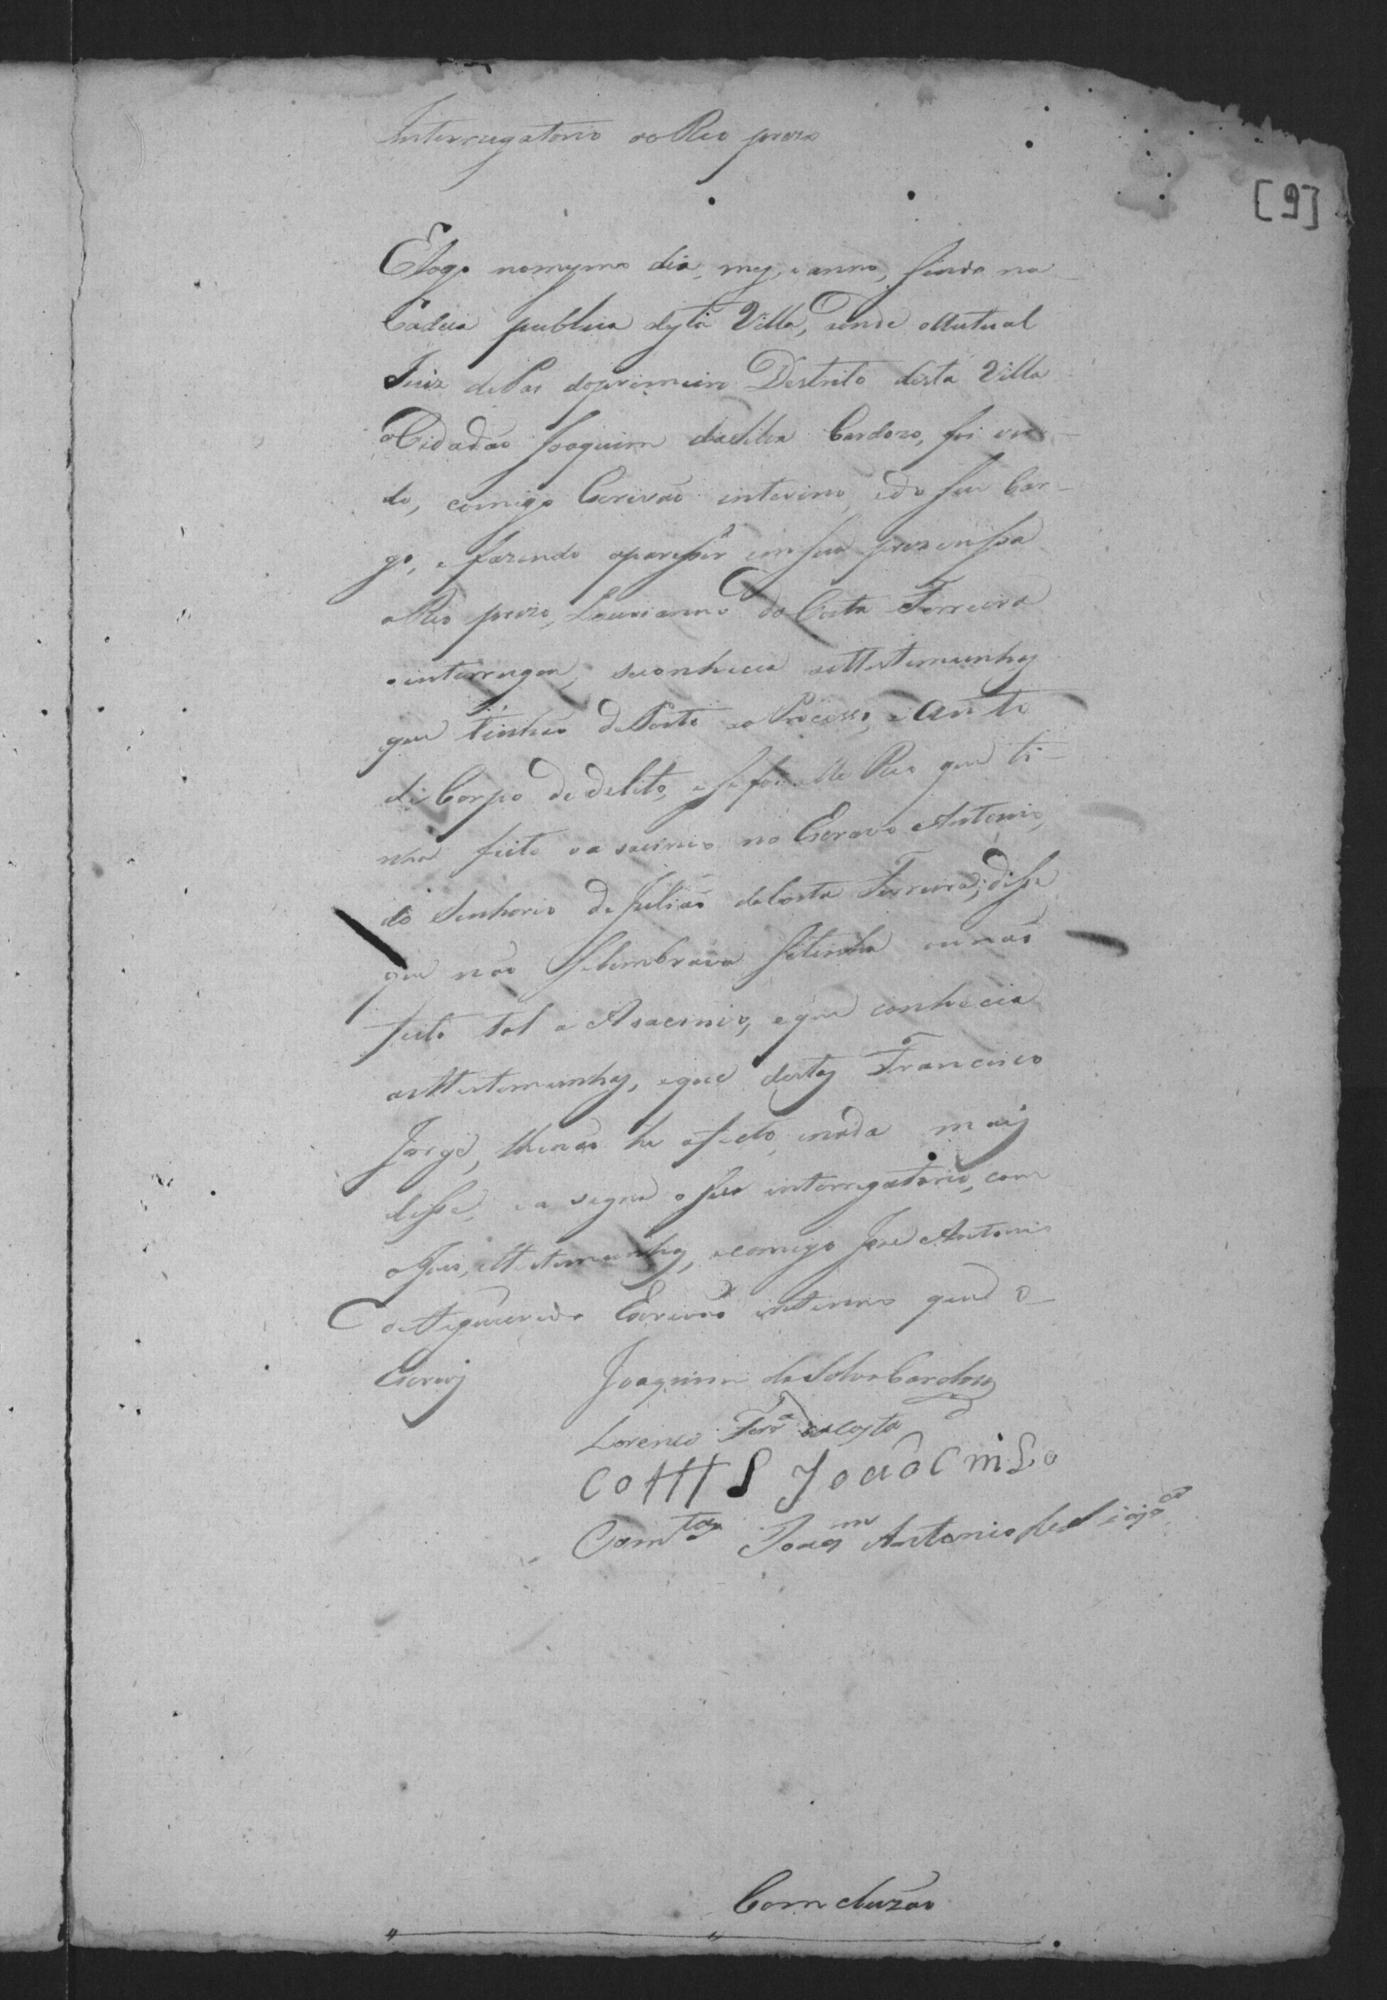 Interrugatorio ao Reo prezo
[9]
E logo no mesmo dia, mez, e anno, sendo na
Cadeia publica desta Villa, donde o Autual
Juiz de Pas do primeiro Destrito desta Villa
o Cidadão Joaquim da Silva Cardozo, foi vin-
do, comigo Escrivão interino, e do seu Car-
go, e fazendo aparesser em sua prezenssa
o Reo prezo, Laurianno da Costa Ferreira
o interrugou, se conhecia as Testemunhas
que tinhão deposto no Processo, e Auto
de Corpo de delito, e se foi elle Reo que ti-
nha feito o asacinio no Escravo Antonio,
do Senhorio de Julião da Costa Ferreira; disse
que não se lembrava se tinha ou não
feito tal o Asacinio, e que conhecia
as Testemunhas, e que destas Francisco
Jorge, lhe não he afecto, e nada mais
disse, e a signa o seu interrugatorio, com
o Juis, e Testemunhas, e comigo José Antonio
Escrivão interino que o
Escrevy
Joaquim da Silva Cardozo
Lorenço Ferrª da Costa
João
Joaqm Antonio
Comcluzão